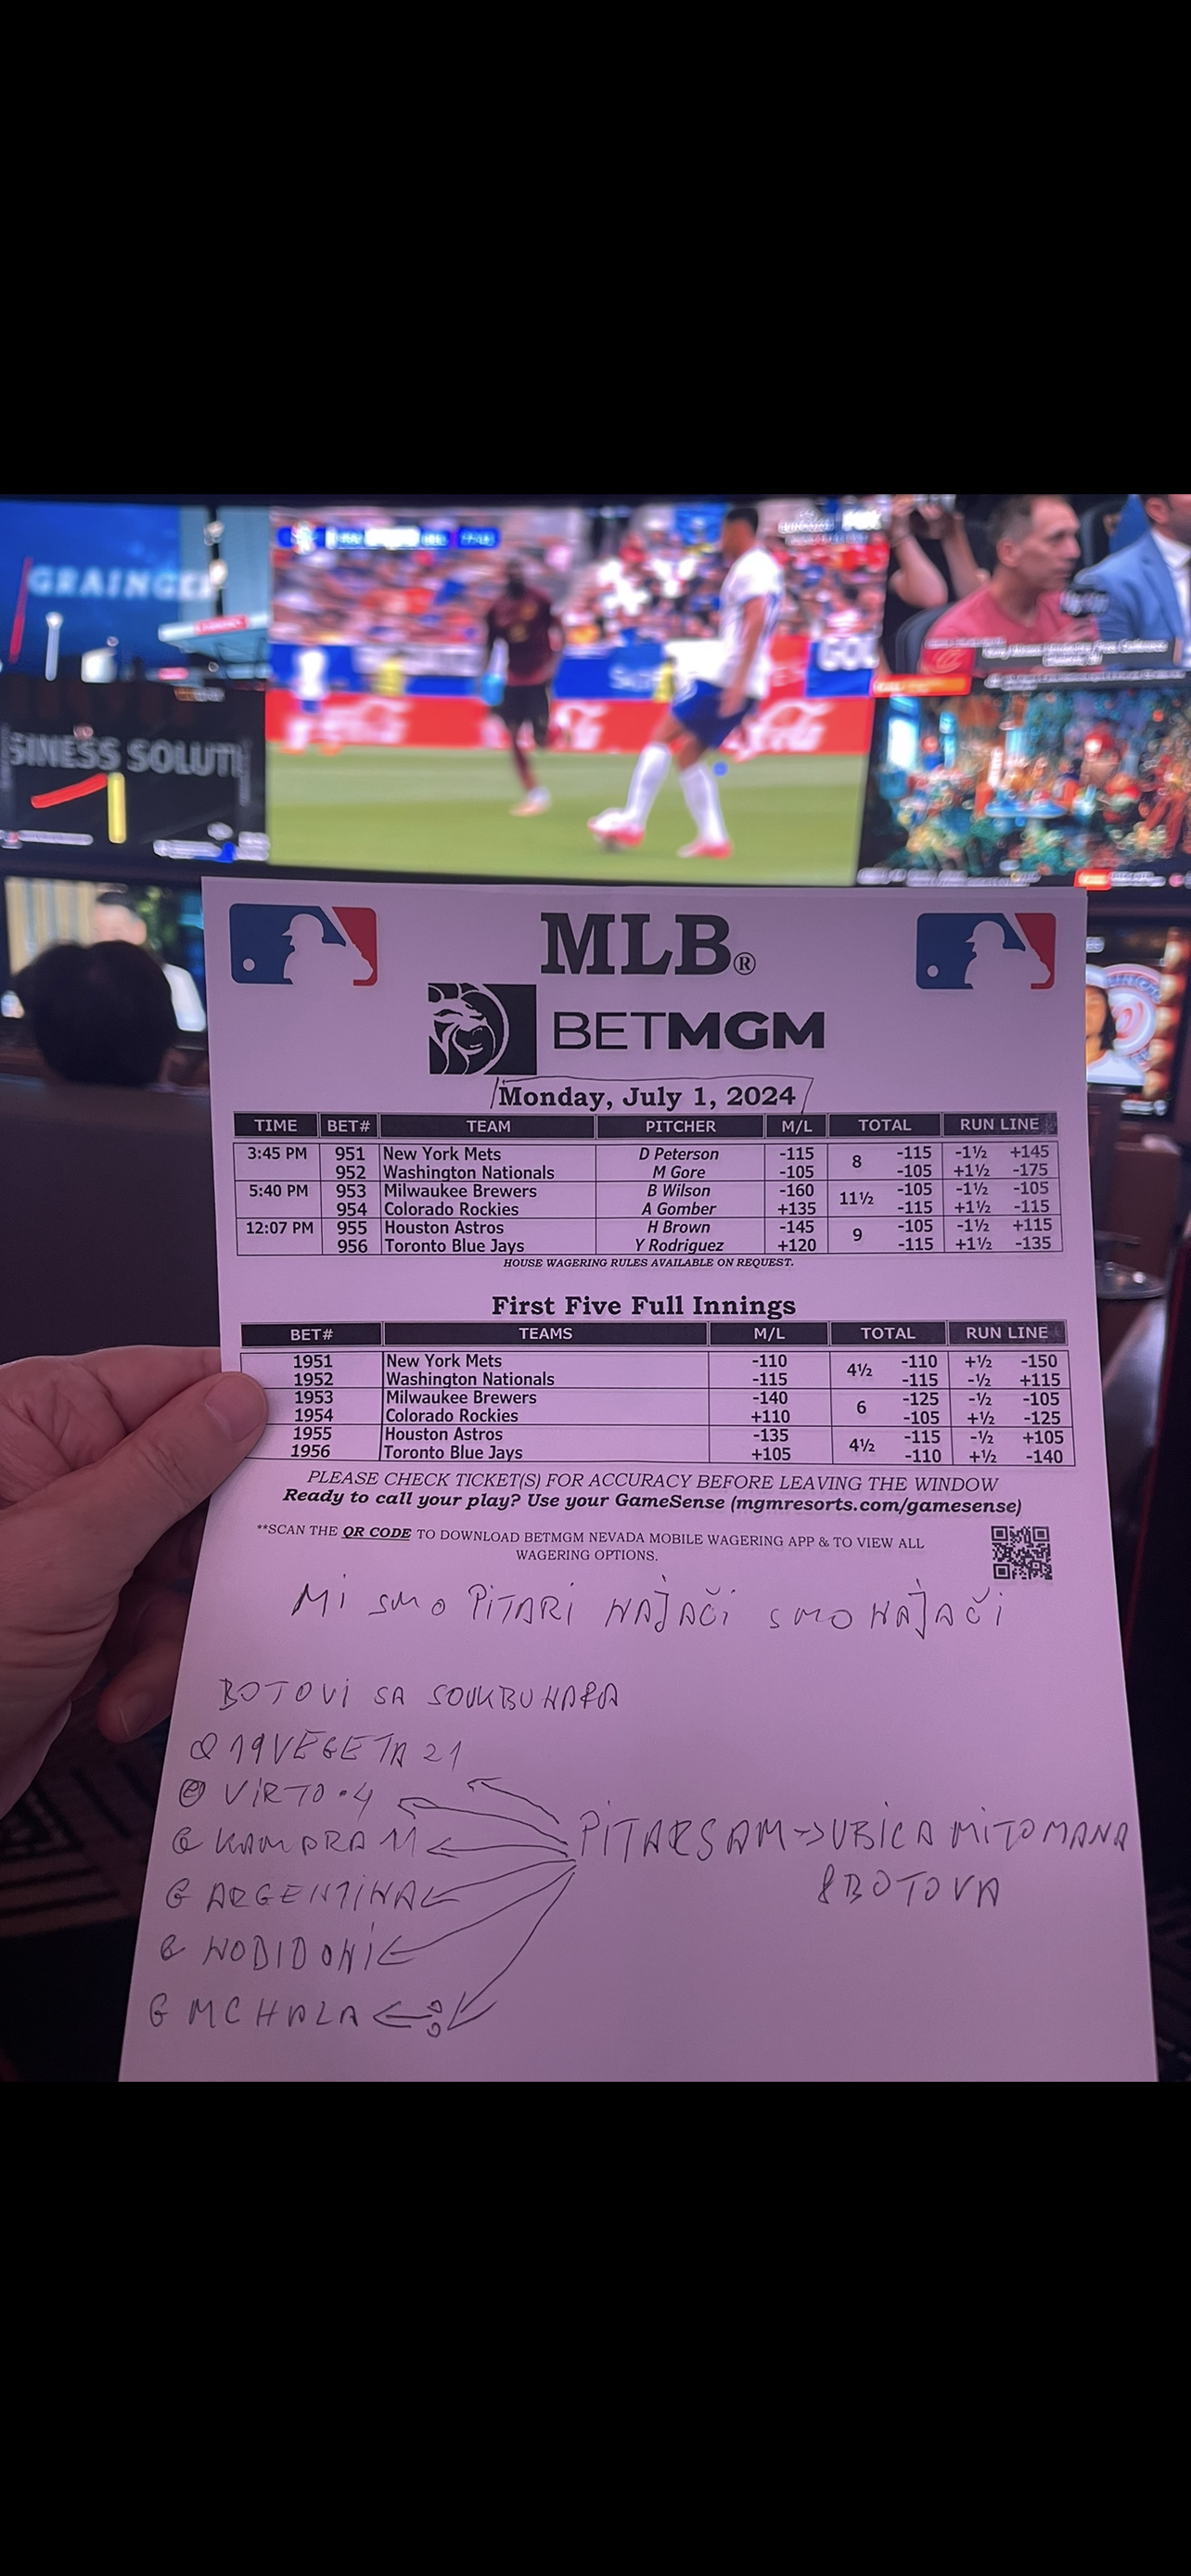 GRAINGE
SINESS SOLUTI
MLB®
BETMGM
Monday, July 1, 2024
TIME BET# TEAM PITCHER M/L TOTAL RUN LINE
3:45 PM 951 New York Mets D Peterson -115 8 -115 -1½ +145
952 Washington Nationals M Gore -105 -105 +1½ -175
5:40 PM 953 Milwaukee Brewers B Wilson -160 11½ -105 -1½ -105
954 Colorado Rockies A Gomber +135 -115 +1½ -115
12:07 PM 955 Houston Astros H Brown -145 9 -105 -1½ +115
956 Toronto Blue Jays Y Rodriguez +120 -115 +1½ -135
HOUSE WAGERING RULES AVAILABLE ON REQUEST.
First Five Full Innings
BET# TEAMS M/L TOTAL RUN LINE
1951 New York Mets -110 4½ -110 +½ -150
1952 Washington Nationals -115 -115 -½ +115
1953 Milwaukee Brewers -140 6 -125 -½ -105
1954 Colorado Rockies +110 -105 +½ -125
1955 Houston Astros -135 4½ -115 -½ +105
1956 Toronto Blue Jays +105 -110 +½ -140
PLEASE CHECK TICKET(S) FOR ACCURACY BEFORE LEAVING THE WINDOW
Ready to call your play? Use your GameSense (mgmresorts.com/gamesense)
**SCAN THE QR CODE TO DOWNLOAD BETMGM NEVADA MOBILE WAGERING APP & TO VIEW ALL
WAGERING OPTIONS.
Mi SMO PiTARi NAJAči SMO NAJAči
BOTOVi SA SOUKBUNARA
@ 19VEGETA 21
@ ViRTO.4
@ KAMPRA 11
@ ARGENTINA
@ NODIDONi
@ MCHALA
PiTARSAM->UBiCA MiTOMANA
&BOTOVA